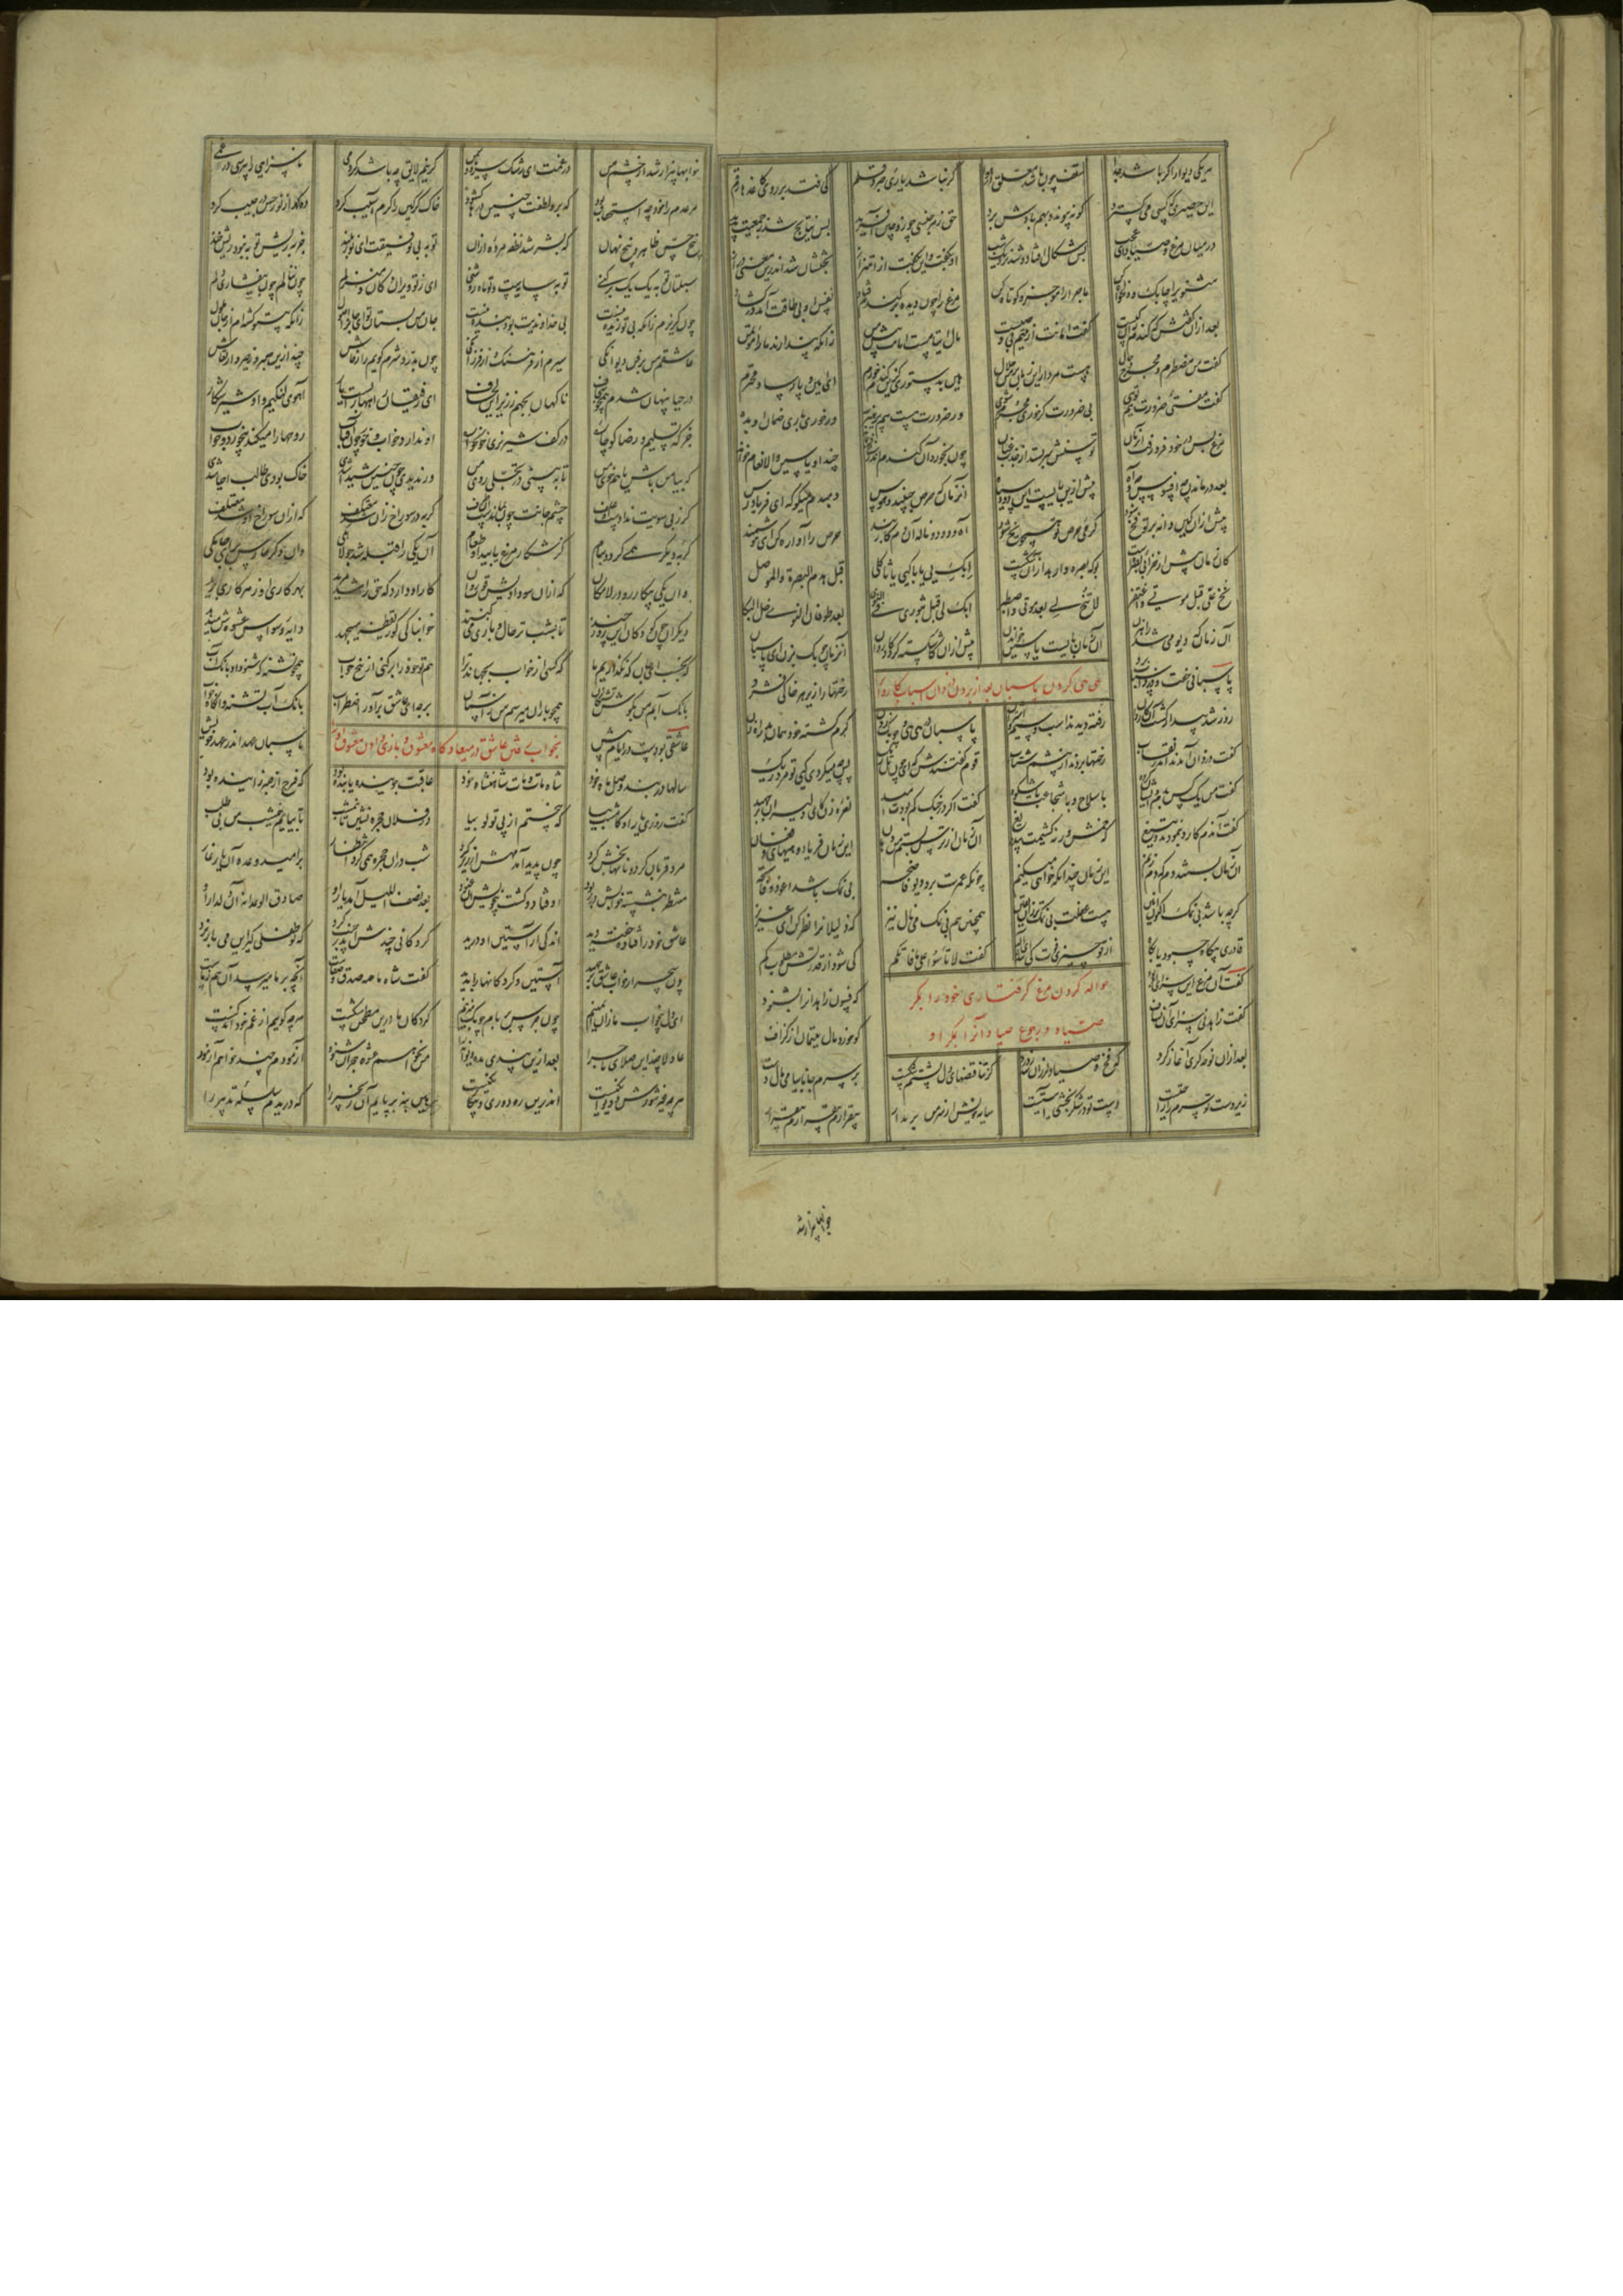 هر یکی دیوار اگر باشد جدا سقف چون باشد معلق در هوا گر نباشد یاری حبر و قلم کی فتد بر روی کاغذها رقم
این حصیری که کسی می‌گسترد گر نپیوندد بهم بادش برد حق ز هر جنسی چو زوجین آفرید پس نتایج شد ز جمعیت پدید
در میان مرغ و صیاد ای عجب بس شکال افتاد و شد نزدیک شب او بگفت و این بگفت از اهتزاز بحثشان شد اندرین معنی دراز
مثنوی را چابک و دلخواه کن ماجرا را موجز و کوتاه کن مرغ را چون دیده بر گندم فتاد نفس او بی طاقت آمد در گشاد
بعد از آن گفتش که گندم آن کیست گفت امانت از یتیم بی وصیست مال ایتامست امانت پیش من زانکه پندارند ما را مؤتمن
گفت من مضطرم و مجروح حال هست مردار این زمان بر من حلال هین بدستوری کزین گندم خورم ای امین و پارسا و محترم
گفت مفتی ضرورت هم توی بی ضرورت گر خوری مجرم شوی ور ضرورت هست هم پرهیز به ور خوری باری ضمان آن بده
مرغ بس در خود فرو رفت آن زمان توسنش سر بستد از جذب عنان چون بخورد آن گندم اندر فخ بماند چند او یاسین و الانعام خواند
بعد در ماندن چه افسوس و چه آه پیش از این بایست این دود سیاه آن زمان که حرص جنبید و هوس دم بدم میگو که ای فریادرس
کان زمان پیش از خرابی بصره است بوک بصره وا رهد از آن شکست ابک لی یا باکیی یا ثاکلی قبل هدم البصرة و الموصل
نح علی قبل موتی واغتفر لا تنح لی بعد موتی واصطبر ابک لی قبل ثبوری فی النوی بعد طوفان النوی خل البکا
آن زمان که دیو می‌شد راه زن آن زمان بایست یاسین خواندن پیش از آن کاشکسته گردد کاروان آن زمان چوبک بزن ای پاسبان
هی هی کردن پاسبان بعد از بردن دزدان اسباب کاروان را
پاسبانی خفت و دزد اسباب برد رختها را زیر هر خاکی فشرد
روز شد بیدار گشت آن کاروان رفته دید اسب و سیم و اشتران پاسبان در هی هی و چوبک زدن گرم گشته خود همان بد راه زن
گفت دزدان آمدند اندر نقاب رختها بردند از پیشم شتاب قوم گفتندش که ای چون تل ریگ پس چه میکردی کیی تو مرده ریگ
گفت من یک کس بدم ایشان گروه با سلاح و با شجاعت با شکوه گفت اگر در جنگ کم بودت امید نعره زن کای کریمان برجهید
گفت آن دم کارد بنمودند و تیغ که خمش ورنه کشیمت بی دریغ آن زمان از ترس بستم من دهان این زمان فریاد و هیهای و فغان
گرچه باشد بی نمک اکنون حنین هست غفلت بی نمک تر زان یقین همچنین هم بی نمک می‌نال نیز که ذلیلان را نظر کن ای عزیز
گفت لا تأسوا علی ما فاتکم کی شود از قدرتش مطلوب گم
حواله کردن مرغ گرفتاری خود را بمکر صیاد و رجوع صیاد آن را بمکر او
گفت آن مرغ این سزای او بود که فسون زاهدان را بشنود
گفت زاهد نی سزای آن نشاف کو خورد مال یتیمان از گزاف
بعد از آن نوحه گری آغاز کرد که فخ و صیاد لرزان شد ز درد کز تناقضهای دل پشتم شکست بر سرم جانا بیا می‌مال دست
زیر دست تو سرم را راحتیست دست تو در شکر بخشی آیتیست سایه خویش از سر من بر مدار بیقرارم بیقرارم بیقرار
خوابها بیزار شد
خوابها بیزار شد از چشم من در غمت ای رشک سرو و یاسمن گر نیم لایق چه باشد گر دمی ناسزایی را بپرسی در غمی
مر عدم را خود چه استحقاق بود که برو لطفت چنین درها گشود خاک گرگین را کرم آسیب کرد ده گهر از نور حس در جیب کرد
پنج حس ظاهر و پنج نهان که بشر شد نطفه مرده از آن توبه بی توفیقت ای نور بلند جز به ریش توبه نبود ریش خند
سبلتان توبه یک یک بر کنی توبه سایه است و تو ماه روشنی ای ز تو ویران دکان و منزلم چون ننالم چون بیفشاری دلم
چون گریزم زانکه بی تو زنده نیست بی خداوندیت بود بنده نیست جان من بستان تو ای جان را اصول زانکه بی تو گشته‌ام از جان ملول
عاشقم من بر فن دیوانگی سیرم از فرهنگ و از فرزانگی چون بدرد شرم گویم راز فاش چند ازین صبر و زحیر و ارتعاش
در حیا پنهان شدم همچون سجاف ناگهان بجهم ز زیر این لحاف ای رفیقان راهها را بست یار آهوی لنگیم و او شیر شکار
جز که تسلیم و رضا کو چاره در کف شیر نری خونخواره او ندارد خواب و خور چون آفتاب روحها را میکند بی خورد و خواب
که بیا من باش یا هم خوی من تا ببینی در تجلی روی من ور ندیدی چون چنین شیدا شدی خاک بودی طالب احیا شدی
گر ز بی سویت ندادست او علف چشم جانت چون بماندست آن طرف گربه در سوراخ زان شد معتکف که از آن سوراخ او شد معتلف
گربه دیگر همی گردد ببام کز شکار مرغ یابید او طعام آن یکی را قبله شد جولاهگی وان دگر حارس برای جامگی
وان یکی بیکار و رو در لامکان که از آن سو دادیش تو قوت جان کار او دارد که حق را شد مرید بهر کار او ز هر کاری برید
دیگران چون کودکان این روز چند تا بشب ترحال و بازی میکنند خوابناکی کو ز یقظه می‌جهد دایه وسواس عشوه‌ش میدهد
که بخسب ای جان که نگذاریم ما که کسی از خواب بجهاند ترا هم تو خود را بر کنی از بیخ خواب همچو تشنه که شنود او بانگ آب
بانگ آبم من بگوش تشنگان همچو باران میرسم از آسمان بر جه ای عاشق برآور اضطراب بانگ آب و تشنه و آنگاه خواب
بخواب رفتن عاشق در میعادگاه معشوق و بازی دادن معشوق او را
عاشقی بودست در ایام پیش پاسبان عهد اندر عهد خویش
سالها در بند وصل ماه خود شاه مات و مات شاهنشاه خود عاقبت جوینده یابنده بود که فرج از صبر زاینده بود
گفت روزی یار او کامشب بیا که پختم از پی تو لوبیا در فلان حجره نشین تا نیم شب تا بیایم نیم شب من بی طلب
مرد قربان کرد و نانها بخش کرد چون پدید آمد مهش از زیر گرد شب در آن حجره همی کرد انتظار بر امید وعده آن یار غار
منتظر بنشسته خوابش در ربود اوفتاد و گشت بیخویش و غنود بعد نصف اللیل آمد یار او صادق الوعدانه آن دلدار او
عاشق خود را فتاده خفته دید اندکی از آستین او درید گردکانی چندش اندر جیب کرد که تو طفلی گیر این می‌باز نرد
چون سحر از خواب عاشق برجهید آستین و گردکانها را بدید گفت شاه ما همه صدق و وفاست آنچه بر ما میرسد آن هم ز ماست
ای دل بیخواب ما زان ایمنیم چون حرس بر بام چوبک میزنیم گردکان ما درین مطحن شکست هر چه گوییم از غم خود اندکست
عاذلا چند این صلای ماجرا بعد ازین پندی مده دیوانه را من نخواهم عشوه هجران شنود آزمودم چند خواهم آزمود
هر چه غیر شورش و دیوانگیست اندرین ره دوری و بیگانگیست هین بنه بر پایم آن زنجیر را که دریدم سلسله تدبیر را